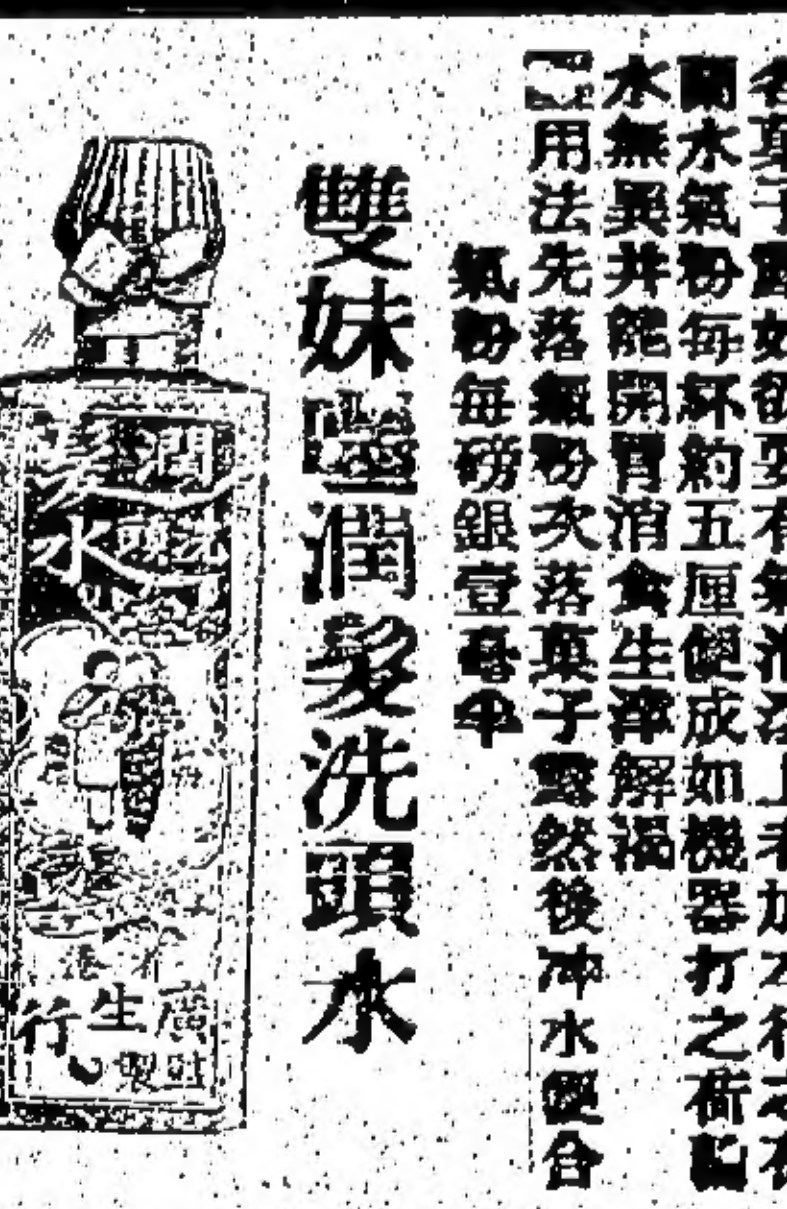 名菓子露如欲要有氣泡
蘭水氣粉每杯約五厘便成如機器打之荷蘭
水無異幷能開胃消食生津解渴
用法先落氣粉次落菓子露然後冲水便合
氣粉每磅銀壹毫半
雙妹嚜潤髮洗頭水
潤髮水
洗頭
廣生行